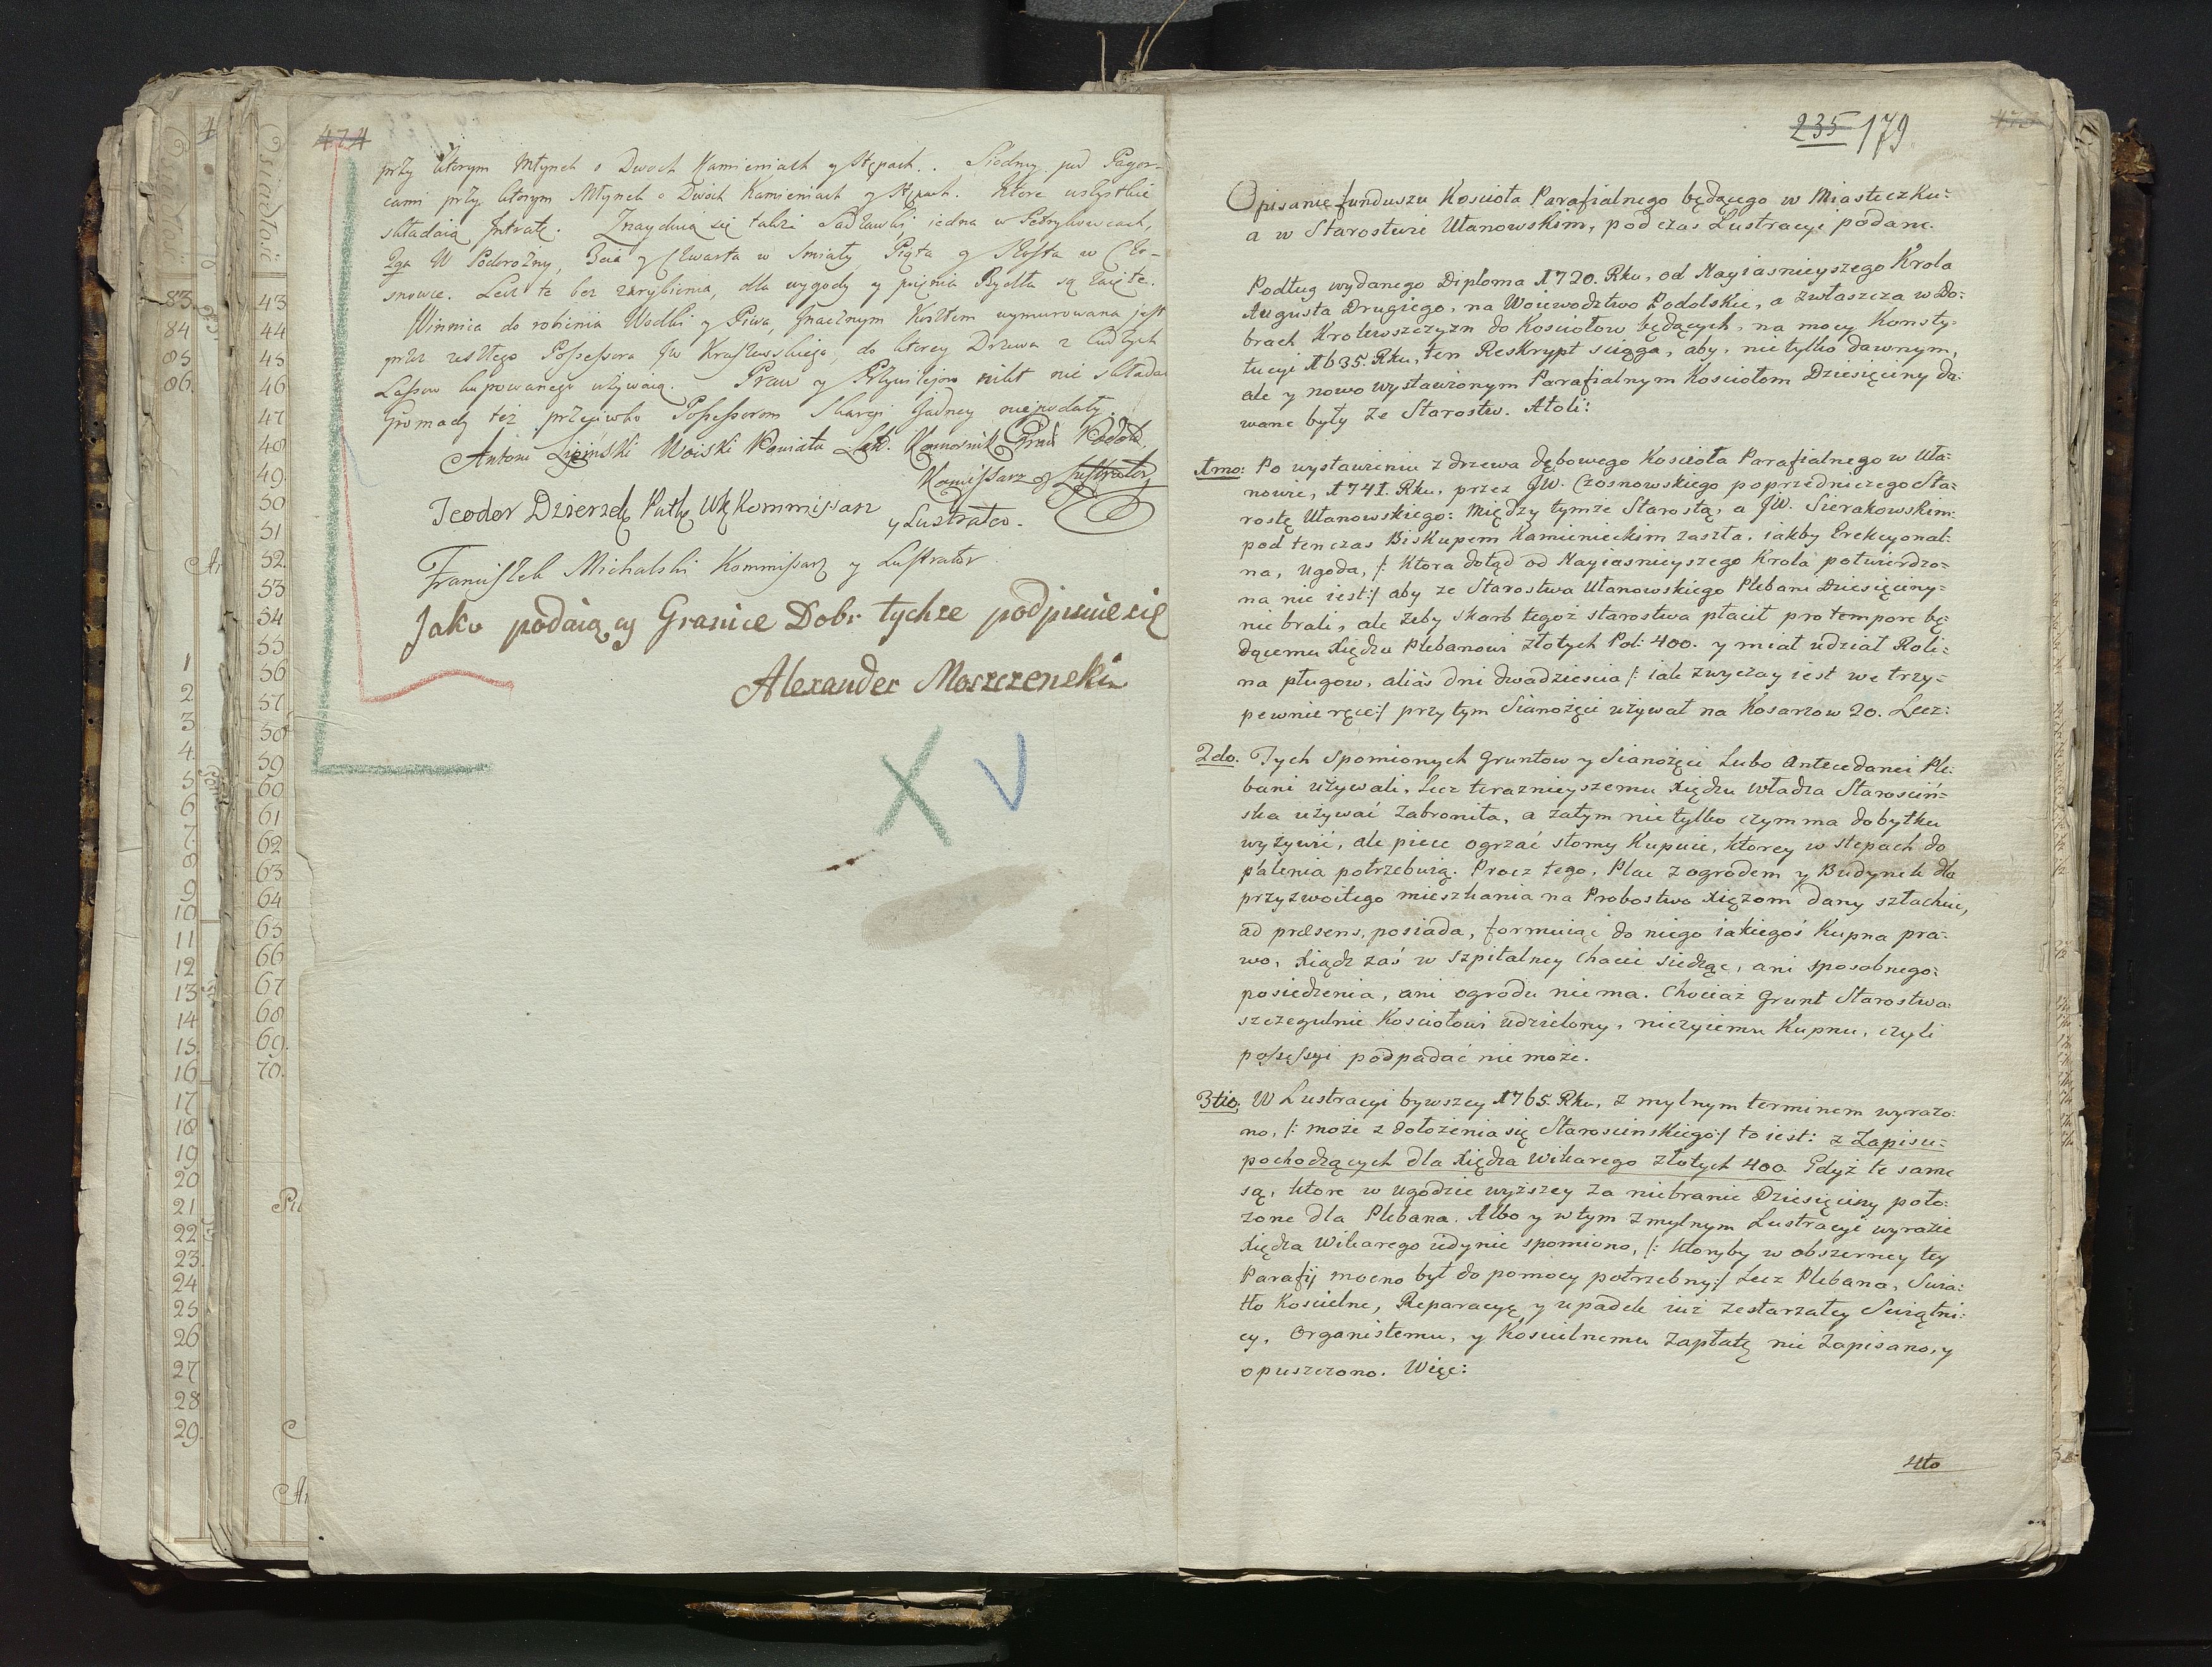 474
przy ktorym Młynek o Dwoch Kamieniach y Stępach. Siodmy pod Pagor-
cami przy ktorym Młynek o Dwoch Kamieniach y Stępach. Ktore wszystkie
składaią Intratę. Znayduią się także Sadzawki, iedna w
2ga W Podorożny, 3cia y Czwarta w Smiały, Piąta y Szosta w Czo-
snowce. Lecz te bez zarybienia, dla wygody y poięnia Bydła są zaięte.
Winnica do robienia Wodki y Piwa, znacznym Kosztem wymurowana jest
przez zeszłego Possessora JW Kraszewskiego, do ktorey Drzewa z cudzych
Lasow kupowanego używaią. Praw y Przywilejow nikt nie składał
Gromady też przeciwko Possessorom Skargi żadney nie podały.
Antoni Lipiński Woiski Powiatu Lat. Komornik Podol.
Kommissarz y Lustrator
Teodor Dzierzek Kommissarz
y Lustrator.
Franciszek Michalski Kommissarz y Lustrator
Jako podaiący Granice Dobr tychże podpisuie się
Alexander Moszczenski
X V
235 179
Opisanie funduszu Koscioła Parafialnego będącego w Miasteczku:
a w Starostwie Ułanowskim, podczas Lustracyi podane.
Podług wydanego Diploma 1720. Rku, od Nayiasnieyszego Krola
Augusta Drugiego, na Woiewodztwo Podolskie, a zwłaszcza w Do:
brach Krolewszczyzn do Kosciołow będących, na mocy Konsty:
tucyi 1635. Rku, ten Reskrypt sciąga, aby, nietylko dawnym,
ale y nowo wystawionym Parafialnym Kosciołom Dziesięciny da:
wane były ze Starostw. Atoli:
1mo: Po wystawieniu z drzewa dębowego Koscioła Parafialnego w Uła:
nowie, 1741. Rku, przez JW. Czosnowskiego poprzedniczego Sta:
rostę Ułanowskiego: między tymże Starostą, a JW. Sierakowskim:
pod tenczas Biskupem Kamienieckim zaszła, iakby Erekcyonal:
na, Ugoda, /: Ktora dotąd od Nayiasnieyszego Krola potwierdzo:
na nie iest:/ aby ze Starostwa Ułanowskiego Plebani Dziesięciny:
nie brali, ale żeby skarb tegoż starostwa płacił pro tempore bę:
dącemu Xiędzu Plebanowi Złotych Pol: 400. y miał udział Roli:
na pługow, alias dni dwadziescia /: iak zwyczay iest we trzy:
pewnie ręce:/ przytym Sianożęci używał na Kosarzow 20. Lecz:
2do. Tych Spomionych gruntow y Sianożęci Lubo Antecedanei Ple:
bani używali, Lecz teraznieyszemu Xiędzu Władza Staroscin:
ska używać Zabroniła, a zatym nietylko czym ma dobytku
wyżywić, ale piece ogrzać słomy Kupuie, ktorey w stepach do
palenia potrzebuią. Procz tego, Plac z ogrodem y Budynek dla
przyzwoitego mieszkania na Probostwo Xiężom dany szlachcic,
ad præsens, posiada, formuiąc do niego iakiegoś Kupna pra:
wo, Xiądz zaś w Szpitalney Chacie siedząc, ani sposobnego:
posiedzenia, ani ogrodu niema. Chociaż Grunt Starostwa:
szczegulnie Kosciołowi udzielony, niczyiemu Kupnu, czyli
possessyi podpadać nie może.
3tio. W Lustracyi bywszey 1765. Rku, z mylnym terminem wyrażo:
no, /: może z dołożenia się Staroscinskiego:/ to iest: z Zapisu:
pochodzących dla Xiędza Wikarego Złotych 400. Gdyż te same
są, ktore w Ugodzie wyższey za niebranie Dziesięciny poło:
żone dla Plebana. Albo y wtym zmylnym Lustracyi wyrazie
Xiędza Wikarego iedynie spomiono, /: ktoryby w obszerney tey
Parafij mocno był do pomocy potrzebny:/ Lecz Plebana, Swia:
tło Koscielne, Reparacyę y upadek iuż Zestarzałey Swiątni:
cy, Organistemu, y Koscielnemu Zapłatę nie Zapisano, y
opuszczono. Więc:
4to
83.
84
85
86.
1
2
3
4
5
6
7
8
9
10
11
12
13
14
15.
16
17
18
19
20
21
22
23.
24
25
26
27
28
29
43
44
45
46
47
48
49.
50
51
52
53
54
55
56
57.
58
59
60
61
62
63
64
65
66
67
68
69.
70.